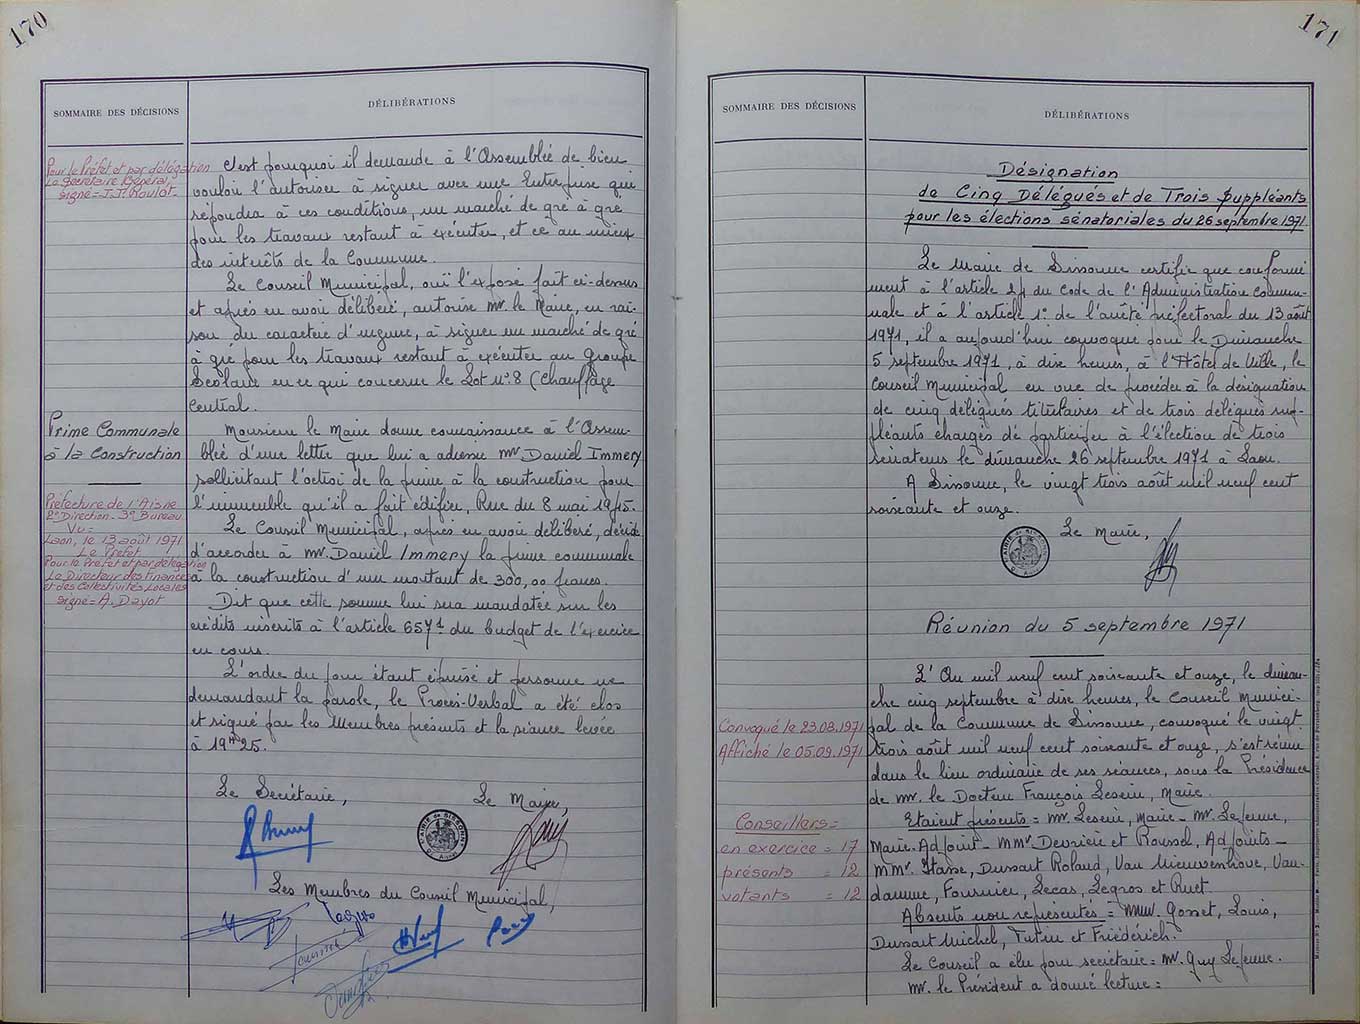 170
SOMMAIRE DES DÉCISIONS
DÉLIBÉRATIONS
Pour le Préfet et par délégation
Le Secrétaire Général,
signé = J.P. Roulot.
C'est pourquoi il demande à l'Assemblée de bien
vouloir l'autoriser à signer avec une Entreprise qui
répondra à ces conditions, un marché de gré à gré
pour les travaux restant à exécuter, et ce au mieux
des intérêts de la Commune.
Le Conseil Municipal, ouï l'exposé fait ci-dessus
et après en avoir délibéré, autorise Mr. le Maire, en rai-
son du caractère d'urgence, à signer un marché de gré
à gré pour les travaux restant à exécuter au Groupe
Scolaire en ce qui concerne le Lot n° 8 (Chauffage
Central.
Prime Communale
à la Construction
Monsieur le Maire donne connaissance à l'Assem-
blée d'une lettre que lui a adressé Mr Daniel Immery
sollicitant l'octroi de la prime à la construction pour
l'immeuble qu'il a fait édifier, Rue du 8 mai 1945.
Préfecture de l'Aisne
2e Direction. 3e Bureau
Vu =
Laon, le 13 août 1971
Le Préfet
Pour le Préfet et par délégation
Le Directeur des Finances
et des Collectivités Locales
signé = A. Dayot
Le Conseil Municipal, après en avoir délibéré, décide
d'accorder à Mr. Daniel Immery la prime communale
à la construction d'un montant de 300,00 francs.
Dit que cette somme lui sera mandatée sur les
crédits inscrits à l'article 657.1 du budget de l'exercice
en cours.
L'ordre du jour étant épuisé et personne ne
demandant la parole, le Procès-Verbal a été clos
et signé par les Membres présents et la séance levée
à 19H25.
Le Secrétaire,
Le Maire,
MAIRIE de SISSONNE
Les Membres du Conseil Municipal,
171
SOMMAIRE DES DÉCISIONS
DÉLIBÉRATIONS
Désignation
de Cinq Délégués et de Trois Suppléants
pour les élections sénatoriales du 26 septembre 1971.
Le Maire de Sissonne certifie que conformé
ment à l'article du Code de l'Administration Commu-
nale et à l'article 1° de l'arrêté préfectoral du 13 août
1971, il a aujourd'hui convoqué pour le Dimanche
5 septembre 1971, à dix heures, à l'Hôtel de Ville, le
Conseil Municipal en vue de procéder à la désignation
de cinq délégués titulaires et de trois délégués sup-
pléants chargés de participer à l'élection de trois
sénateurs le dimanche 26 septembre 1971 à Laon.
A Sissonne, le vingt trois août mil neuf cent
soixante et onze.
Le Maire,
MAIRIE DE SISSONNE
Réunion du 5 septembre 1971
L'An mil neuf cent soixante et onze, le diman-
che cinq septembre à dix heures, le Conseil Munici-
Convoqué le 23.08.1971
pal de la Commune de Sissonne, convoqué le vingt
Affiché le 05.09.1971
trois août mil neuf cent soixante et onze, s'est réuni
dans le lieu ordinaire de ses séances, sous la Présidence
de Mr. le Docteur François Leseur, Maire.
Conseillers =
en exercice = 17
présents = 12
votants = 12
Etaient présents = Mr. Leseur, Maire - Mr. Lefeuve,
Maire-Adjoint - MMr. Devrière et Roussel, Adjoints -
MMr. Stasse, Dussart Roland, Van Nieuwenhove, Van-
damme, Fournier, Lecas, Legros et Ruet.
Absents non représentés = MMr. Gosset, Louis,
Dussart Michel, Tutin et Friedérich.
Le Conseil a élu pour secrétaire = Mr. Guy Lefeuve.
Mr. le Président a donné lecture =